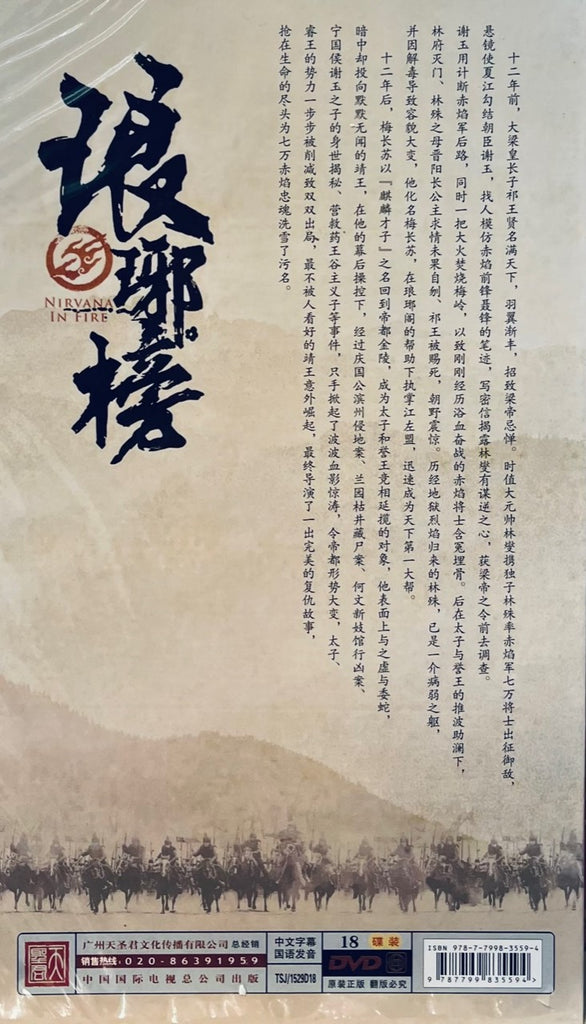 琅琊榜
NIRVANA
IN FIRE
十二年前，大梁皇长子祁王贤名满天下，羽翼渐丰，招致梁帝忌惮。时值大元帅林燮携独子林殊率赤焰军七万将士出征御敌，
悬镜使夏江勾结朝臣谢玉，找人模仿赤焰前锋聂锋的笔迹，写密信揭露林燮有谋逆之心，获梁帝之令前去调查。
谢玉用计断赤焰军后路，同时一把大火焚烧梅岭，以致刚刚经历浴血奋战的赤焰将士含冤埋骨。后在太子与誉王的推波助澜下，
林府灭门、林殊之母晋阳长公主求情未果自刎、祁王被赐死，朝野震惊。历经地狱烈焰归来的林殊，已是一介病弱之躯，
并因解毒导致容貌大变，他化名梅长苏，在琅琊阁的帮助下执掌江左盟，迅速成为天下第一大帮。
十二年后，梅长苏以『麒麟才子』之名回到帝都金陵，成为太子和誉王竞相延揽的对象，他表面上与之虚与委蛇，
暗中却投向默默无闻的靖王，在他的幕后操控下，经过庆国公滨州侵地案、兰园枯井藏尸案、何文新妓馆行凶案、
宁国侯谢玉之子的身世揭秘、营救药王谷主义子等事件，只手掀起了波波血影惊涛，令帝都形势大变，太子、
睿王的势力一步步被削减致双双出局，最不被人看好的靖王意外崛起，最终导演了一出完美的复仇故事，
抢在生命的尽头为七万赤焰忠魂洗雪了污名。
广州天圣君文化传播有限公司 总经销
销售热线:020-86391959
中国国际电视总公司出版
中文字幕
国语发音
TSJ/1529D18
18 碟装
DVD
原装正版 翻版必究
ISBN 978-7-7998-3559-4
9 787799 835594 >